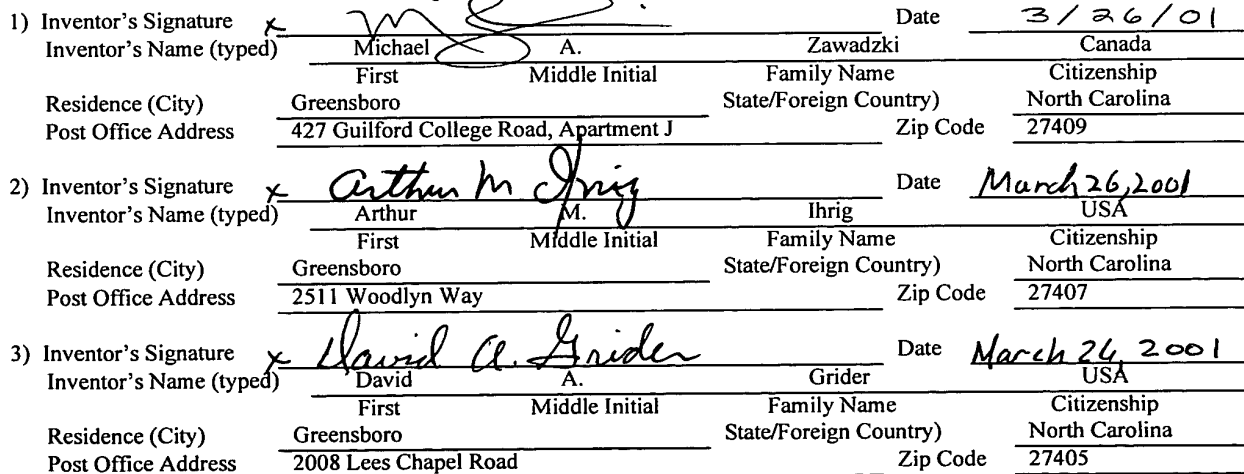 1) Inventor's Signature x Date 3/26/01
Inventor's Name (typed) Michael A. Zawadzki Canada
First Middle Initial Family Name Citizenship
Residence (City) Greensboro State/Foreign Country) North Carolina
Post Office Address 427 Guilford College Road, Apartment J Zip Code 27409
2) Inventor's Signature x Arthur M Ihrig Date March 26, 2001
Inventor's Name (typed) Arthur M. Ihrig USA
First Middle Initial Family Name Citizenship
Residence (City) Greensboro State/Foreign Country) North Carolina
Post Office Address 2511 Woodlyn Way Zip Code 27407
3) Inventor's Signature x David A. Grider Date March 26, 2001
Inventor's Name (typed) David A. Grider USA
First Middle Initial Family Name Citizenship
Residence (City) Greensboro State/Foreign Country) North Carolina
Post Office Address 2008 Lees Chapel Road Zip Code 27405